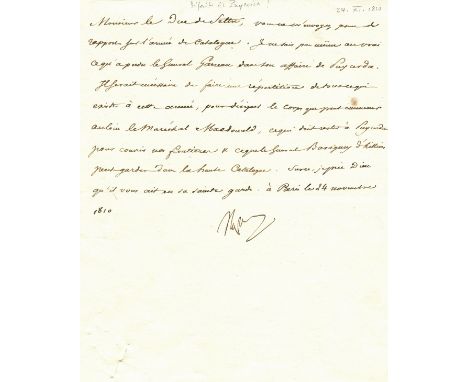 24. XI. 1810
Monsieur le Duc de Feltre, vous ne m'envoyez point de
rapports sur l'armée de Catalogne. Je ne sais pas même au vrai
ce qu'a perdu le Général Gareau dans son affaire de Puycerda.
Il serait nécessaire de faire une répartition de tout ce qui
existe à cette armée, pour distinguer le corps que peut emmener
au loin le Maréchal Macdonald, ce qui doit rester à Puycerda
pour couvrir nos frontières & ce que le Général Baraguey d'hilliers
peut garder dans la haute Catalogne. Sur ce, je prie Dieu
qu'il vous ait en sa sainte garde. à Paris le 24 novembre
1810